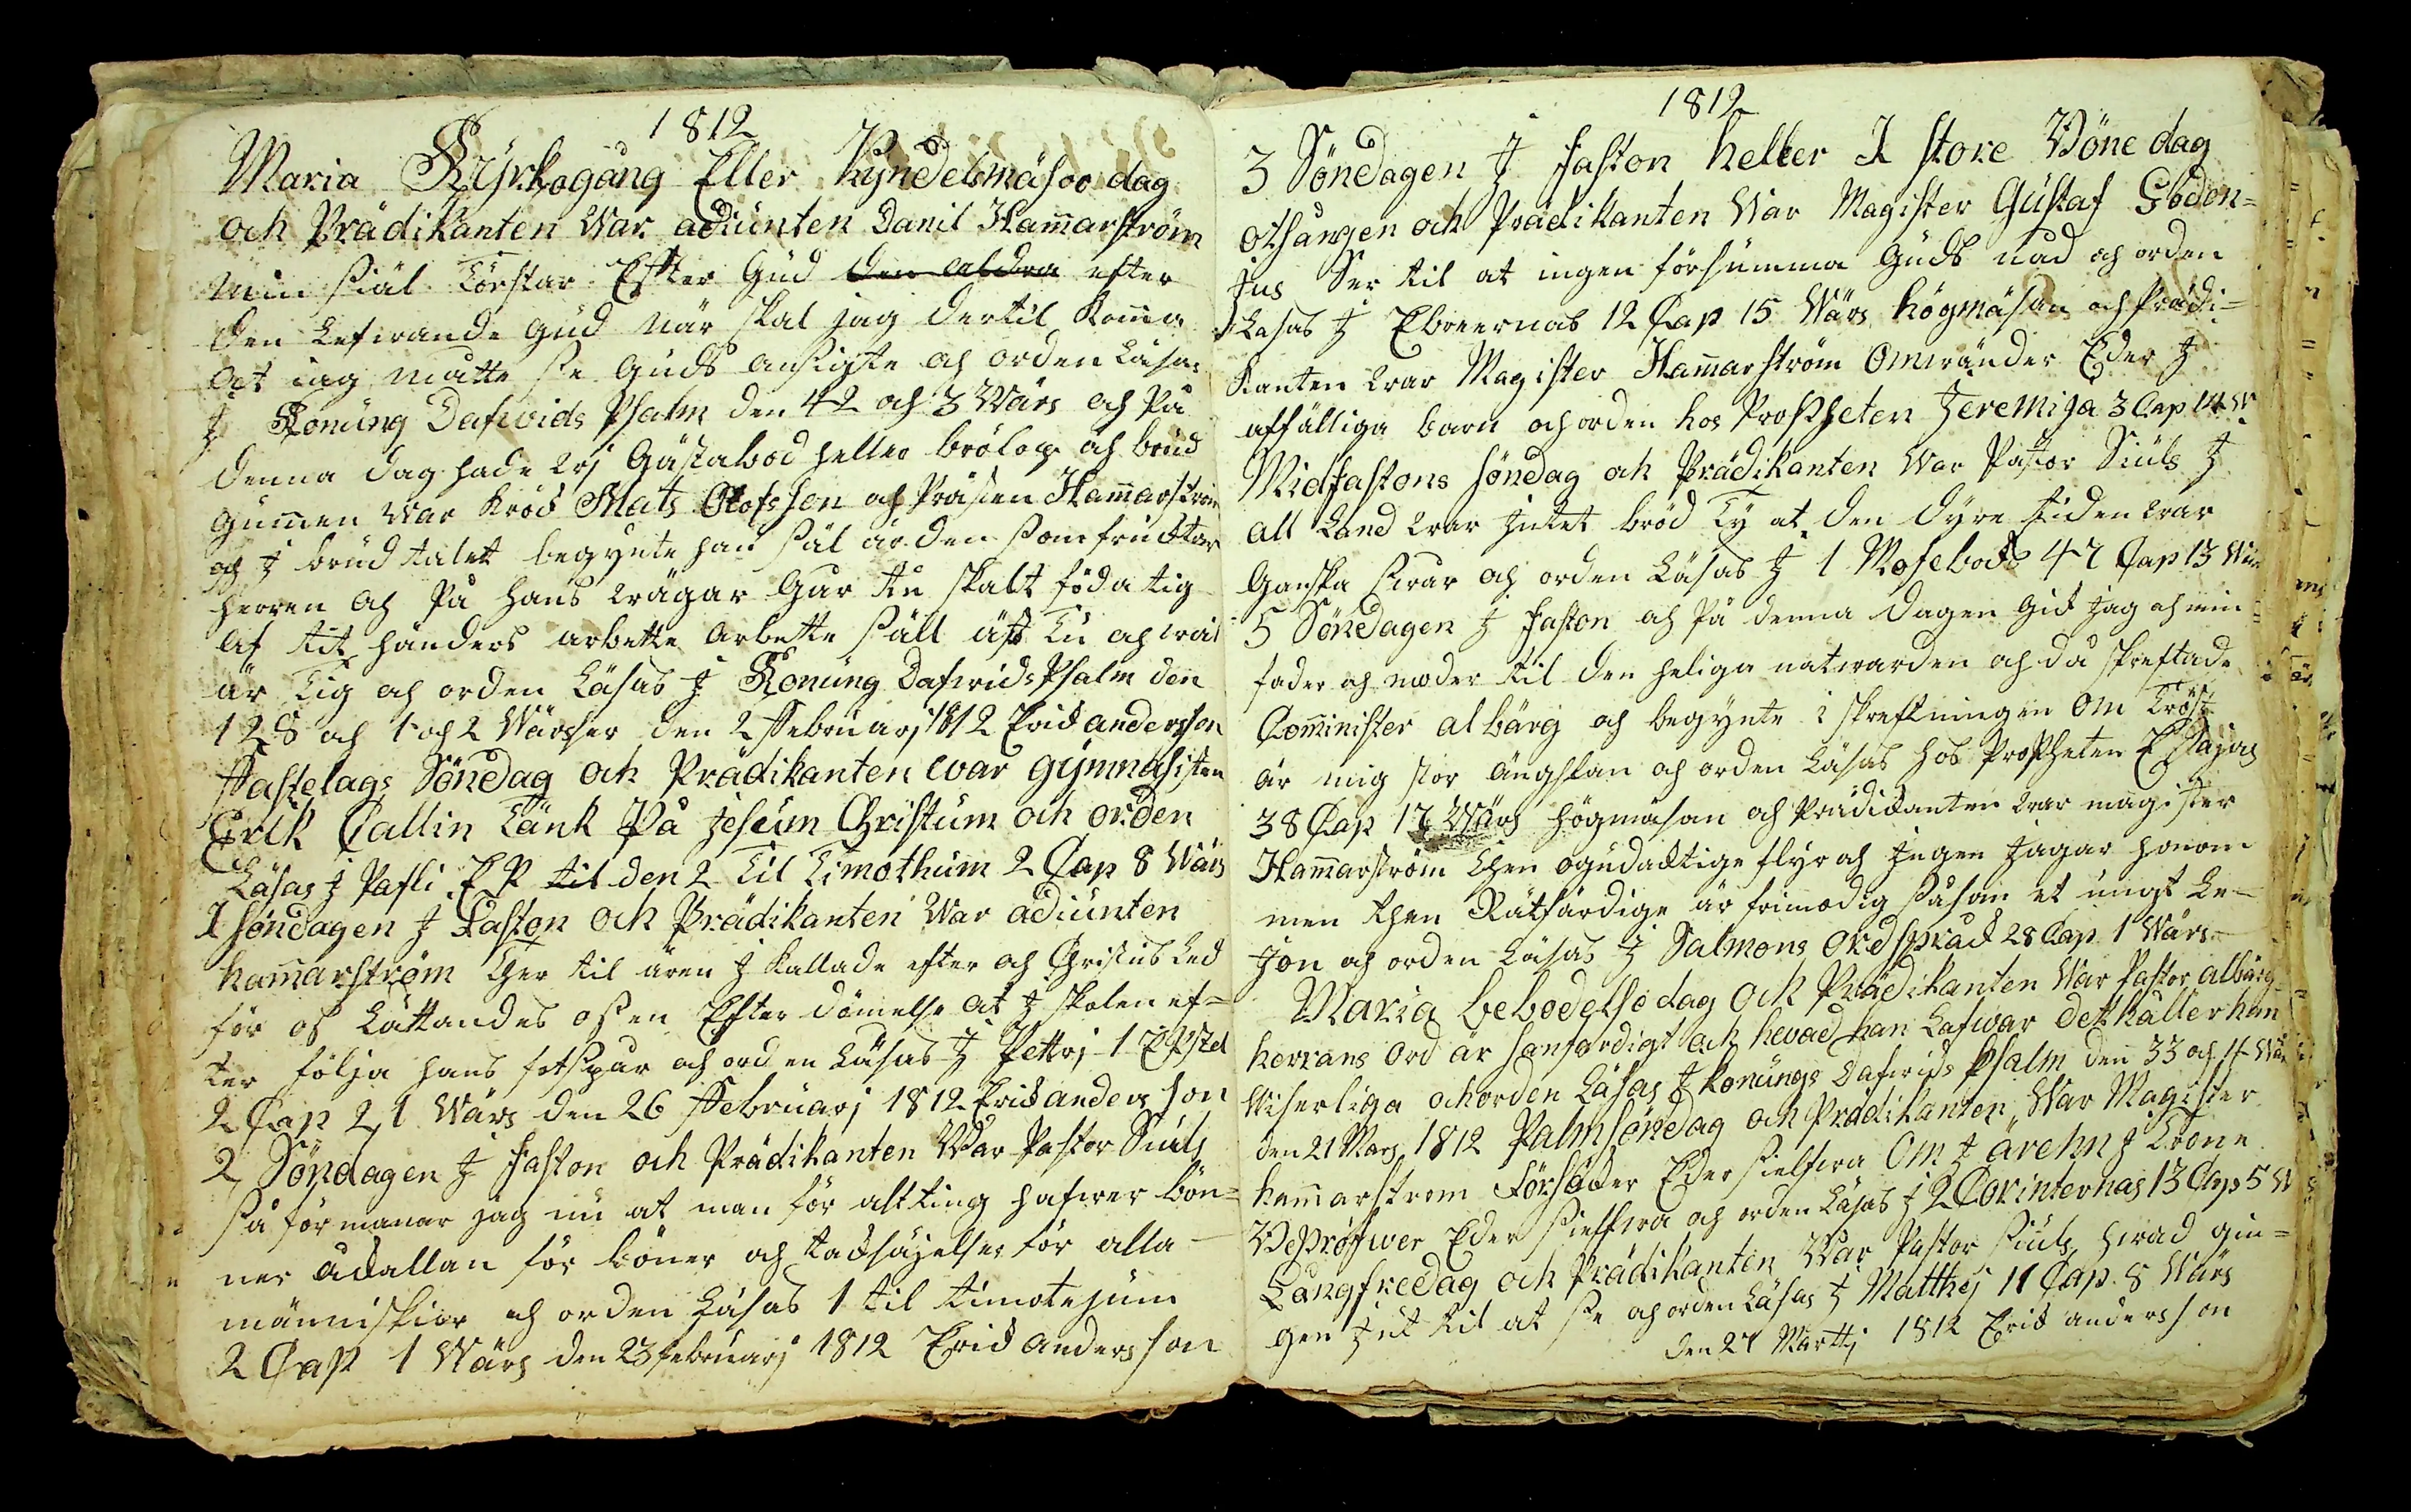 1812
Maria Kyrkogång Eller Kyndelsmäsoo dag
och Prädikanten War adiunten Danil Ham̅arström
Min siäl Törstar Efter Gud den aldra efter
den Lefwande Gud när skal jag dertil Kom̅a
At iag matte se Guds ansigte och orden Läsas
J Konung Dafwids Psalm den 42 och 3 Wärs och På
denna dag hade wj Gästabod heller brölop och brud
gum̅en War Knod Mats Olofsson och Prästen Ham̅arström
och J brudtalet begynte han säl är den som frucktar
Herren och På hans wägar Gar tu skalt föda tig
Af tit händers arbette Arbette säll äst tu och wäl
är tig och orden Läsas J Konung Dafwids Psalm den
128 och 1 och 2 Wärsser den 2 Februarj 1812 Erick andersson
Fastelags Söndag och Prädikanten war gymnasisten
Erik Callin Tänk På Jesum Christum och orden
Läsas J Pafli EP til den 2 Til Timothum 2 Cap 8 Wärs
1 söndagen J Faston och Prädikanten War adiunten
ham̅arström Ther til ären J kallade efter och Christus Led
för oss Lättandes oss en Efterdömelse at J skolen ef=
ter följa hans fotspar och orden Läsas J Pettrj 1 EPstel
2 Cap 21 Wärs den 26 Februarj 1812 Erick andersson
2 Söndagen J Faston och Prädikanten War Pastor Siuls
så förmanar jag nu at man för altting hafwer bön=
ner åckallan för böner och tacksäjelser för alla
människior och orden Läsas 1 til timotejum
2 Cap 1 Wärs den 23 februarj 1812 Erick andersson
1812
3 Söndagen J Faston heller I store Böne dag
othsangen och Prädikanten War Magister Gustaf
jus Ser til at ingen försumma Guds nad och orden
Lasas J Ebreernas 12 Cap 15 Wärs högmäsan och Prädi=
kanten war Magister Ham̅arström Omwänder Eder J
affälliga barn och orden hos Propheten Jeremija 3 Cap 14 W
Midfastons söndag och Prädikanten War Pastor Siuls J
all Land war Intet bröd Ty at den dyre tiden war
Ganska swar och orden Läsas J 1 Mosebock 47 Cap 13 Wärs
5 Söndagen J Faston och På denna dagen Gick jag och min
fader och moder til den heliga natwarden och då skreftade
Com̅inister albärg och begynte i skreftningen Om Tröst
är mig stor ängslan och orden Läsas hos Propheten Esajas
38 Cap 17 Wärs Högmäsan och Prädickanten war magister
Ham̅arström Then ogudacktige flyr och Ingen Jagar honom
men then Rätfärdige är frimodig såsom et ungt Le=
Jon och orden Läsas J Salmons Ordspråck 28 Cap 1 Wärs
Maria bebodelse dag Och Prädikanten War Pastor albärg
herrans Ord är sanfärdigt och hwad han Lafwar dett håller han
Wiserliga och orden Läsas J konungs Dafwids Psalm den 33 och 4 Wärs
den 21 Mars 1812 Palmsöndag och Prädikanten War Magister
ham̅arstrom Försöcker Eder sielfwa Om J ären J Trone
Bepröfwer Eder sielfwa och orden Läsas J 2 Corinternas 13 Cap 5 W
Långfredag och Prädikanten War Pastor Siuls hwad gin=
gen J ut til at se och orden Läsas J Matthej 11 Cap 8 Wärs
den 27 Marttj 1812 Erick andersson